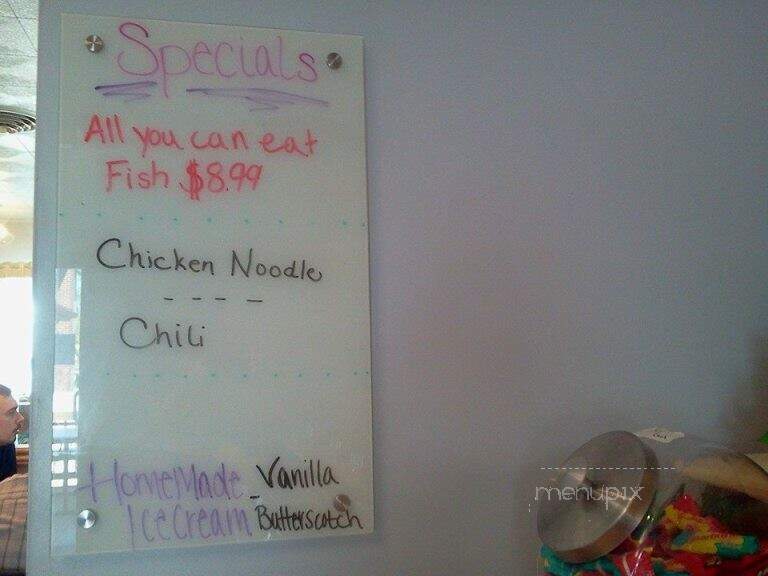 Specials
All you can eat
Fish $8.99
Chicken Noodle
Chili
HomeMade Vanilla
Ice Cream Butterscotch
menupix